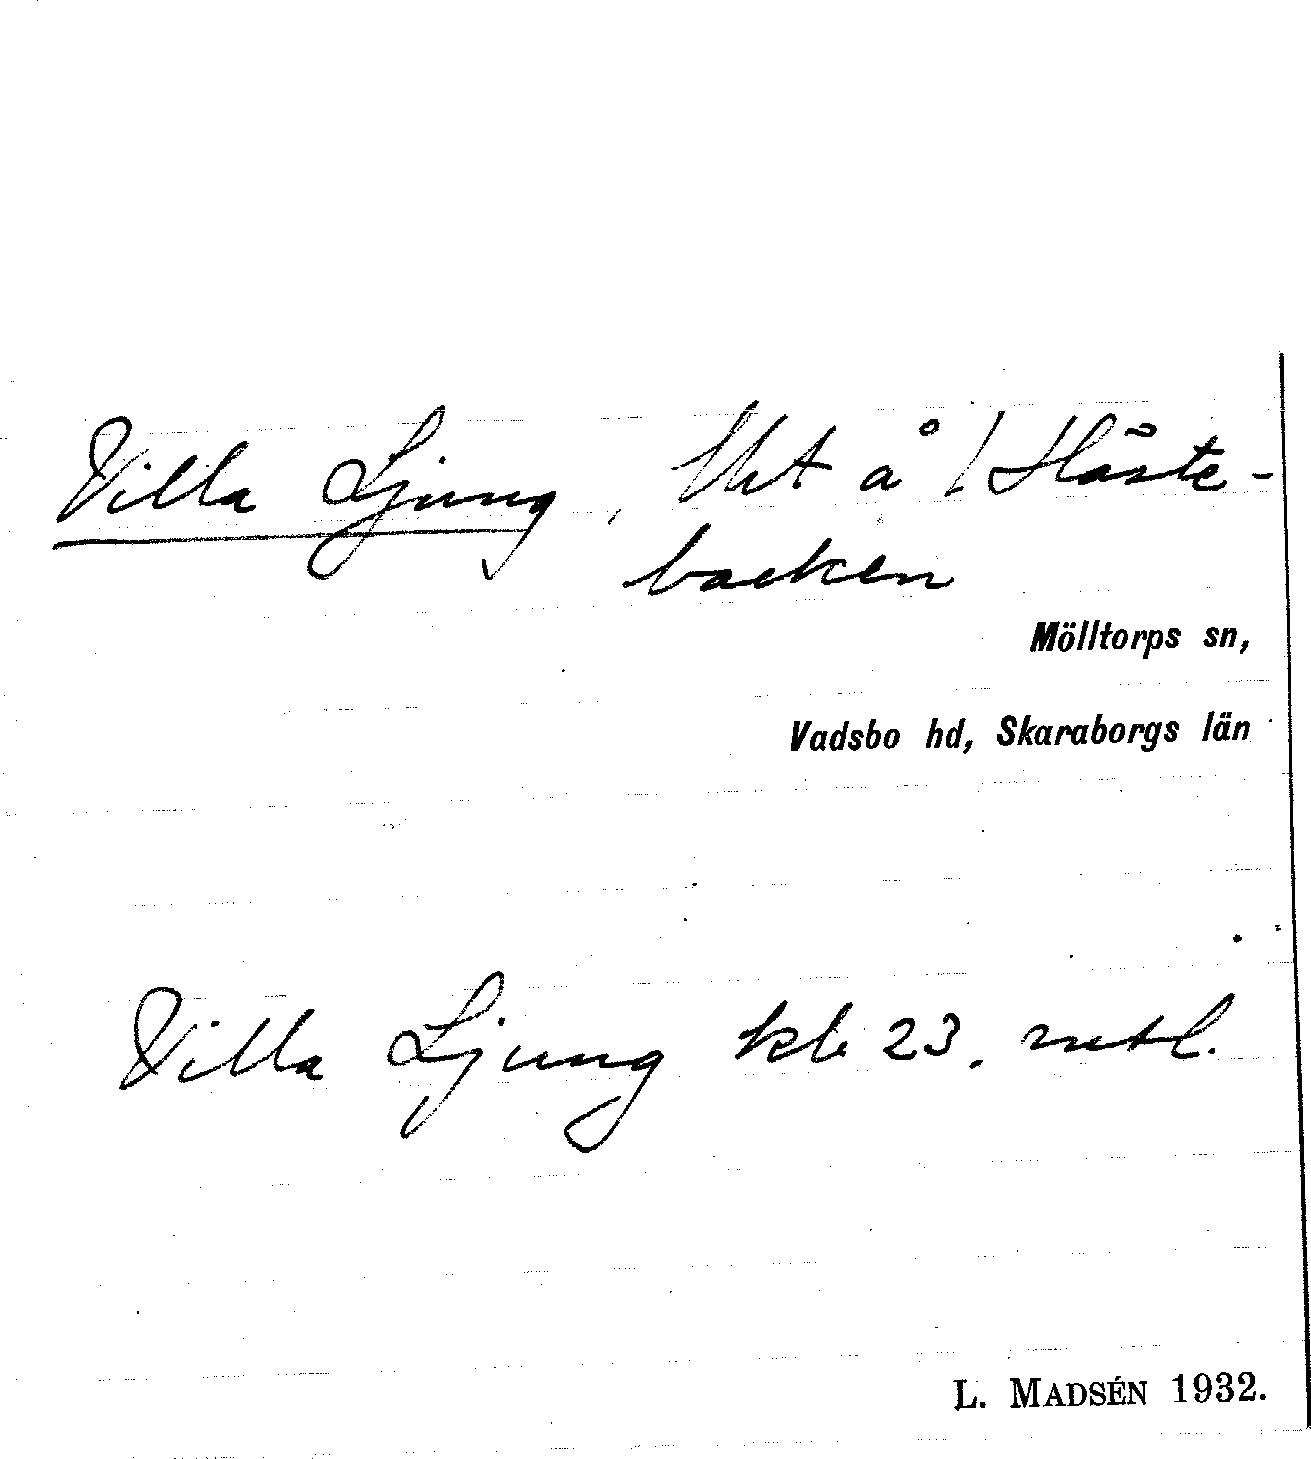 Villa Ljung, Uht å / Håste-
backen
Mölltorps sn,
Vadsbo hd, Skaraborgs län
Villa Ljung kb 23. mtl.
L. MADSÉN 1932.